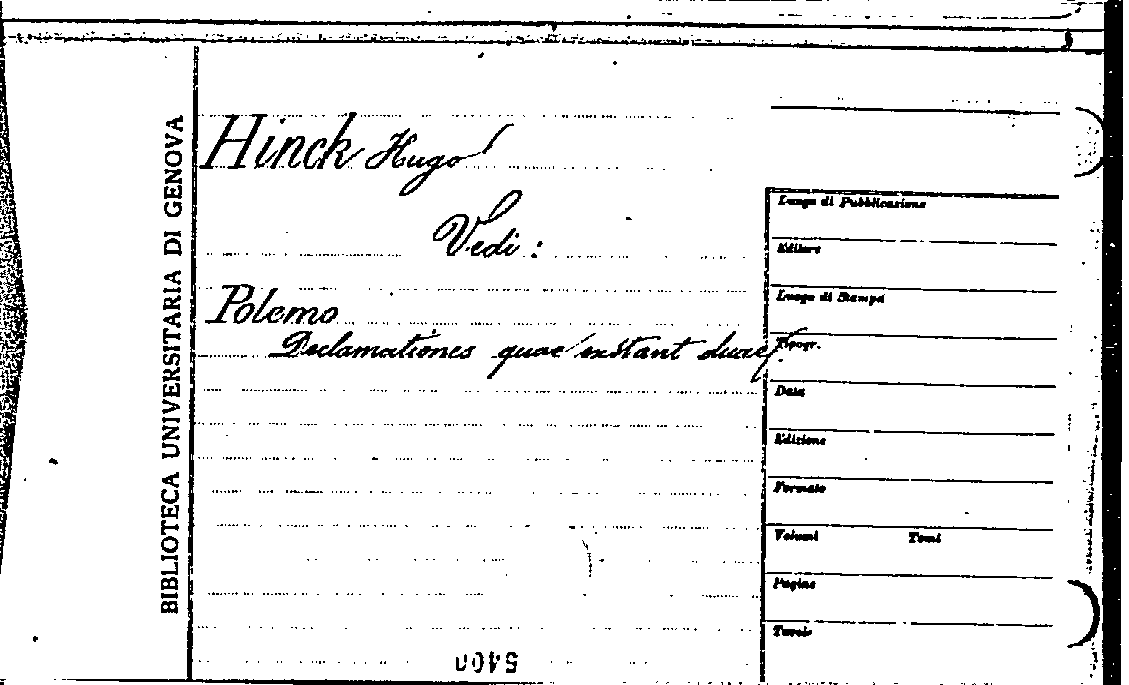 BIBLIOTECA UNIVERSITARIA DI GENOVA
Hinck Hugo
Vedi :
Polemo
Declamationes quae exstant duae.
Luogo di Pubblicazione
Editore
Luogo di Stampa
Tipogr.
Data
Edizione
Formato
Volumi Tomi
Pagine
Tavole